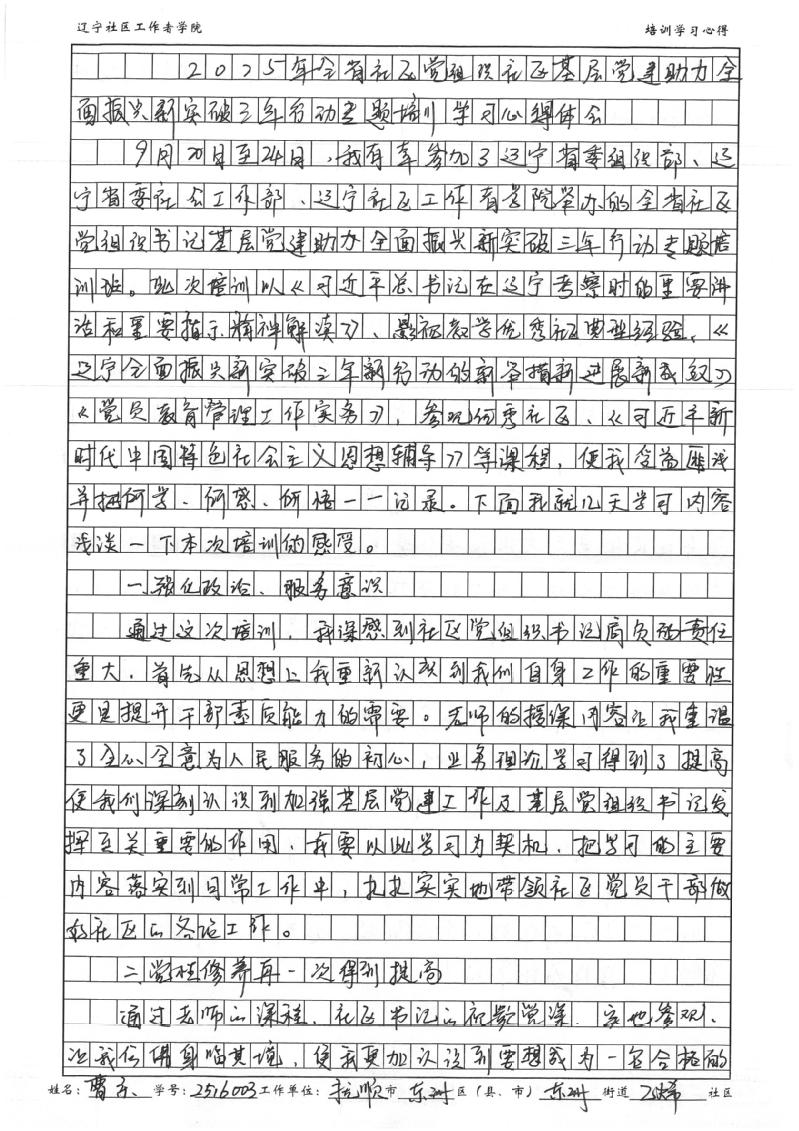 辽宁社区工作者学院 培训学习心得
2025年全省社区党组织社区基层党建助力全
面振兴新突破三年行动专题培训学习心得体会
9月20日至24日，我有幸参加了辽宁省委组织部、辽
宁省委社会工作部、辽宁社区工作者学院举办的全省社区
党组织书记基层党建助力全面振兴新突破三年行动专题培
训班。此次培训以《习近平总书记在辽宁考察时的重要讲
话和重要指示精神解读》、影视教学优秀社区典型经验、《
辽宁全面振兴新突破三年新行动的新举措新进展新成效》
《党员教育管理工作实务》，参观优秀社区、《习近平新
时代中国特色社会主义思想辅导》等课程，使我受益匪浅
并把所学、所感、所悟一一记录。下面我就几天学习内容
浅谈一下本次培训的感受。
一、强化政治、服务意识
通过这次培训，我深感到社区党组织书记肩负的责任
重大，首先从思想上我重新认识到我们自身工作的重要性
更是提升干部素质能力的需要。老师的授课内容让我重温
了全心全意为人民服务的初心，业务理论学习得到了提高
使我们深刻认识到加强基层党建工作及基层党组织书记发
挥至关重要的作用，我要以此学习为契机，把学习的主要
内容落实到日常工作中，扎扎实实地带领社区党员干部做
好社区的各项工作。
二、党性修养再一次得到提高
通过老师的课程、社区书记的视频党课、实地参观、
让我们身临其境，使我更加认识到要想成为一名合格的
姓名： 学号：2516003 工作单位：抚顺市 东洲 区（县、市） 东洲 街道 社区